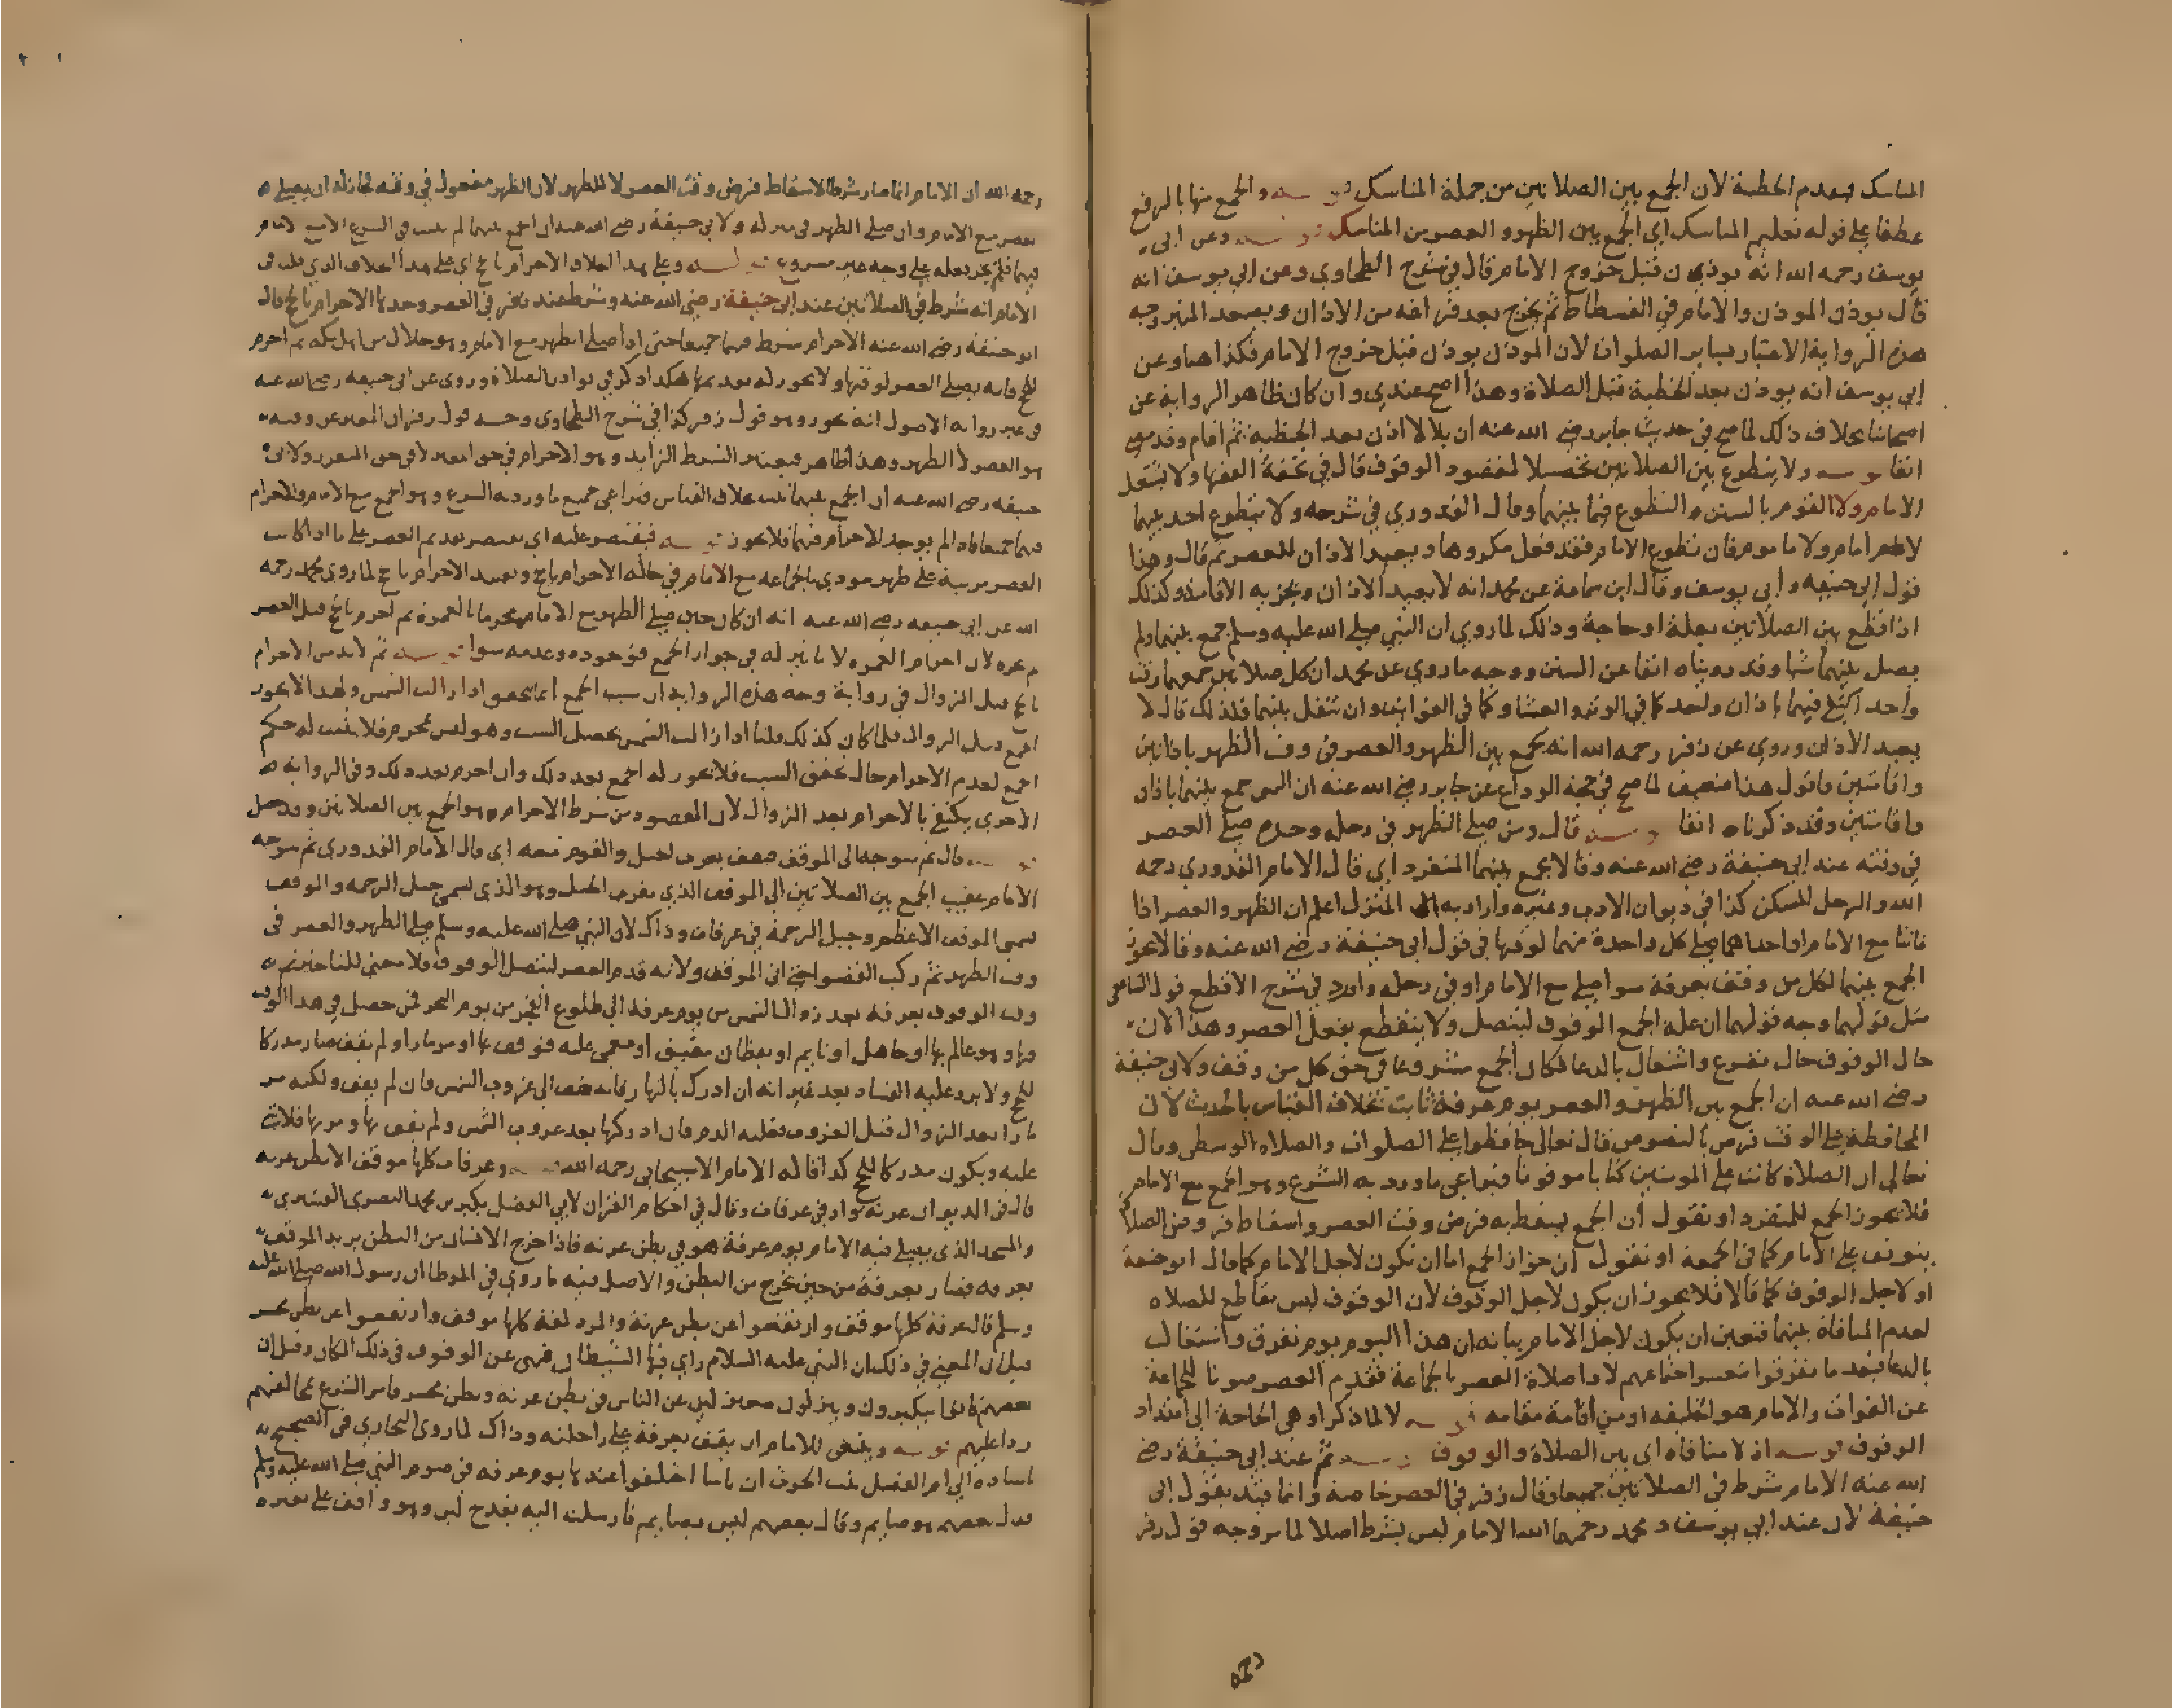 المناسك فيقدم الخطبة لان الجمع بين الصلاتين من جملة المناسك قوله والجمع منها بالرفع
عطفا على قوله تعليم المناسك اي الجمع بين الظهر والعصر من المناسك قوله وعن ابي
يوسف رحمه الله انه يوذن قبل خروج الامام قال في شرح الطحاوي وعن ابي يوسف انه
قال يوذن الموذن والامام في الفسطاط ثم يخرج بعد فراغه من الاذان ويصعد المنبر وجه
هذه الرواية الاعتبار بساير الصلوات لان الموذن يوذن قبل خروج الامام فكذا هنا وعن
ابي يوسف انه يوذن بعد الخطبة قبل الصلاة وهذا اصح عندي وان كان ظاهر الرواية عن
اصحابنا بخلاف ذلك لما صح في حديث جابر رضي الله عنه ان بلالا اذن بعد الخطبة ثم اقام وقد مر
انفا قوله ولا يتطوع بين الصلاتين تحصيلا لمقصود الوقوف قال في تحفة الفقها ولا يشتغل
الامام ولا القوم بالسنن والتطوع فيما بينهما وقال القدوري في شرحه ولا يتطوع احد بينهما
لا امام ولا ماموم فان تطوع الامام فقد فعل مكروها ويعيد الاذان للعصر ثم قال وهذا
قول ابي حنيفه وابي يوسف وقال ابن سماعة عن محمد انه لا يعيد الاذان ويجزيه الاقامة وكذلك
اذا قطع بين الصلاتين بعلة او حاجة وذلك لما روي ان النبي صلى الله عليه وسلم جمع بينهما ولم
يصل بينهما شيا وقد رويناه انفا عن السنن ووجه ما روي عن محمد ان كل صلاتين جمعهما وقت
واحد اكتفي فيهما باذان واحد كما في الوتر والعشا وكما في الفوايت وان تنفل بينهما فلذلك قال لا
يعيد الاذان وروي عن زفر رحمه الله انه يجمع بين الظهر والعصر في وقت الظهر باذانين
واقامتين واقول هذا ضعيف لما صح في حجة الوداع عن جابر رضي الله عنه ان النبي جمع بينهما باذان
واقامتين وقد ذكرناه انفا قوله قال ومن صلى الظهر في رحله وحده صلى العصر
في وقته عند ابي حنيفة رضي الله عنه وقالا يجمع بينهما المنفرد اي قال الامام القدوري رحمه
الله والرحل المسكن كذا في ديوان الادب وغيره واراد به المنزل اعلم ان الظهر والعصر اذا
فاتتا مع الامام او احداهما صلى كل واحدة منهما لوقتها في قول ابي حنيفة رضي الله عنه وقالا يجوز
الجمع بينهما لكل من وقف بعرفة سوا صلى مع الامام او في رحله واورد في شرح الاقطع قول الشافعي
مثل قولهما وجه قولهما ان علة الجمع الوقوف ليتصل ولا ينقطع بفعل العصر وهذا لان
حال الوقوف حال تضرع واشتغال بالدعا فكان الجمع مشروعا في حق كل من وقف ولابي حنيفة
رضي الله عنه ان الجمع بين الظهر والعصر يوم عرفة ثابت بخلاف القياس بالحديث لان
المحافظة على الوقت فرض بالنصوص قال تعالى حافظوا على الصلوات والصلاه الوسطى وقال
تعالى ان الصلاة كانت على المومنين كتابا موقوتا فيراعى ما ورد به الشرع وهو الجمع مع الامام
فلا يجوز الجمع للمنفرد او نقول ان الجمع يسقط به فرض وقت العصر واسقاط فرض الصلاة
يتوقف على الامام كما في الجمعة او نقول ان جواز الجمع اما ان تكون لاجل الامام كما قال ابو حنيفة
او لاجل الوقوف كما قالا فلا يجوز ان يكون لاجل الوقوف لان الوقوف ليس بقاطع للصلاه
لعدم المنافاة بينهما فتعين ان يكون لاجل الامام بيانه ان هذا اليوم يوم تفرق واشتغال
بالدعا فبعد ما تفرقوا يتعسر اجتماعهم لاداء صلاة العصر بالجماعة فقدم العصر صونا للجماعة
عن الفوات والامام هو الخليفه او من اقامة مقامه قوله لا لما ذكراه وهي الحاجة الى امتداد
الوقوف قوله اذ لا منافاه اي بين الصلاة والوقوف قوله ثم عند ابي حنيفة رضي
الله عنه الامام شرط في الصلاتين جميعا وقال زفر في العصر خاصة وانما قيد بقول ابي
حنيفة لان عند ابي يوسف ومحمد رحمهما الله الامام ليس بشرط اصلا لما مر وجه قول زفر
رحمه
رحمه الله ان الامام انما صار شرطا لاسقاط فرض وقت العصر لا للظهر لان الظهر مفعول في وقته فجاز له ان يصلي
العصر مع الامام وان صلى الظهر في منزله ولابي حنيفة رضي الله عنه ان الجمع بينهما لم يثبت في الشرع الا مع الامام
فيهما فلم يجز فعله على وجه غير مشروع قوله وعلى هذا الخلاف الاحرام بالحج اي على هذا الخلاف الذي قلت في
الامام انه شرط في الصلاتين عند ابي حنيفة رضي الله عنه وشرط عند زفر في العصر وحدها الاحرام بالحج قال
ابو حنيفة رضي الله عنه الاحرام شرط فيهما جميعا حتى اذا صلى الظهر مع الامام وهو حلال من اهل مكه ثم احرم
للحج فانه يصلي العصر لوقتها ولا يجوز له تقديمها هكذا ذكر في نوادر الصلاة وروى عن ابي حنيفه رضي الله عنه
في غير رواية الاصول انه يجوز وهو قول زفر كذا في شرح الطحاوى وجه قول زفر ان المغير عن وقته
هو العصر لا الظهر وهذا ظاهر فيعتبر الشرط الزايد وهو الاحرام في حق المغير لا في حق المقرر ولابي
حنيفه رضي الله عنه ان الجمع بينهما ثبت بخلاف القياس فيراعى جميع ما ورد به الشرع وهو الجمع مع الامام والاحرام
فيهما جميعا فاذا لم يوجد الاحرام فيهما فلا يجوز قوله فيقتصر عليه اي يقتصر تقديم العصر على ما اذا كانت
العصر مرتبة على ظهر مودي بالجماعه مع الامام في حالة الاحرام بالحج وتقييد الاحرام بالحج لما روى محمد رحمه
الله عن ابي حنيفه رضي الله عنه انه ان كان حين صلى الظهر مع الامام محرما بالعمرة ثم احرم بالحج قبل العصر
لم يجزه لان احرام العمره لا تاثير له في جواز الجمع فوجوده وعدمه سوا قوله ثم لا بد من الاحرام
بالحج قبل الزوال في رواية وجه هذه الرواية ان سبب الجمع انما يتحقق اذا زالت الشمس ولهذا لا يجوز
الجمع قبل الزوال فلما كان كذلك قلنا اذا زالت الشمس يحصل السبب وهو ليس بمحرم فلا يثبت له حكم
الجمع لعدم الاحرام حال تحقق السبب فلا يجوز له الجمع بعد ذلك وان احرم بعد ذلك وفي الرواية
الاخرى يكتفي بالاحرام بعد الزوال لان المقصود من شرط الاحرام هو الجمع بين الصلاتين وقد حصل
قوله قال ثم يتوجه الى الموقف فيقف بقرب الجبل والقوم معه اي قال الامام القدوري ثم يتوجه
الامام عقيب الجمع بين الصلاتين الى الموقف الذي بقرب الجبل وهو الذي يسمى جبل الرحمه والموقف
يسمى الموقف الاعظم وجبل الرحمة في عرفات وذاك لان النبي صلى الله عليه وسلم صلى الظهر والعصر في
وقت الظهر ثم ركب القصوا حتى اتى الموقف ولانه قدم العصر ليتصل الوقوف فلا معنى للتاخير ثم
وقت الوقوف بعرفة بعد زوال الشمس من يوم عرفة الى طلوع الفجر من يوم النحر فمن حصل في هذا الوقت
فيها وهو عالم بها او جاهل او نايم او يقظان مفيق او مغمي عليه فوقف بها او مر مارا ولم يقف صار مدركا
للحج ولا يرد عليه الفساد بعد غير انه ان ادرك بالنهار فانه يقف الى غروب الشمس فان لم يقف ولكنه مر
مارا بعد الزوال قبل الغروب فعليه الدم فان ادركها بعد غروب الشمس ولم يقف بها ومر بها فلا شي
عليه ويكون مدركا للحج كذا قاله الامام الاسبيجابي رحمه الله قوله وعرفات كلها موقف الا بطن عرنه
قال في الديوان عرنه واد في عرفات وقال في احكام القران لابي الفضل بكر بن محمد البصري القشيري
والمسجد الذي يصلي فيه الامام يوم عرفة هو في بطن عرنه فاذا خرج الانسان من البطن يريد الموقف
بعرفه فصار بعرفة من حين يخرج من البطن والاصل فيه ما روي في الموطا ان رسول الله صلى الله عليه
وسلم قال عرفة كلها موقف وارتفعوا عن بطن عرنة والمزدلفة كلها موقف وارتفعوا عن بطن محسر
قيل ان المعنى في ذلك ان النبي عليه السلام راي فيها الشيطان فنهى عن الوقوف في ذلك المكان وقيل ان
بعضهم كانوا يتكبرون وينزلون معتزلين عن الناس في بطن عرنه وبطن محسر فامر الشرع بمخالفتهم
ردا عليهم قوله وينبغي للامام ان يقف بعرفة على راحلته وذاك لما روى البخاري في الصحيح
باسناده الى ام الفضل بنت الحرث ان ناسا اختلفوا عندها يوم عرفه في صوم النبي صلى الله عليه وسلم
فقال بعضهم هو صايم وقال بعضهم ليس بصايم فارسلت اليه بقدح لبن وهو واقف على بعيره